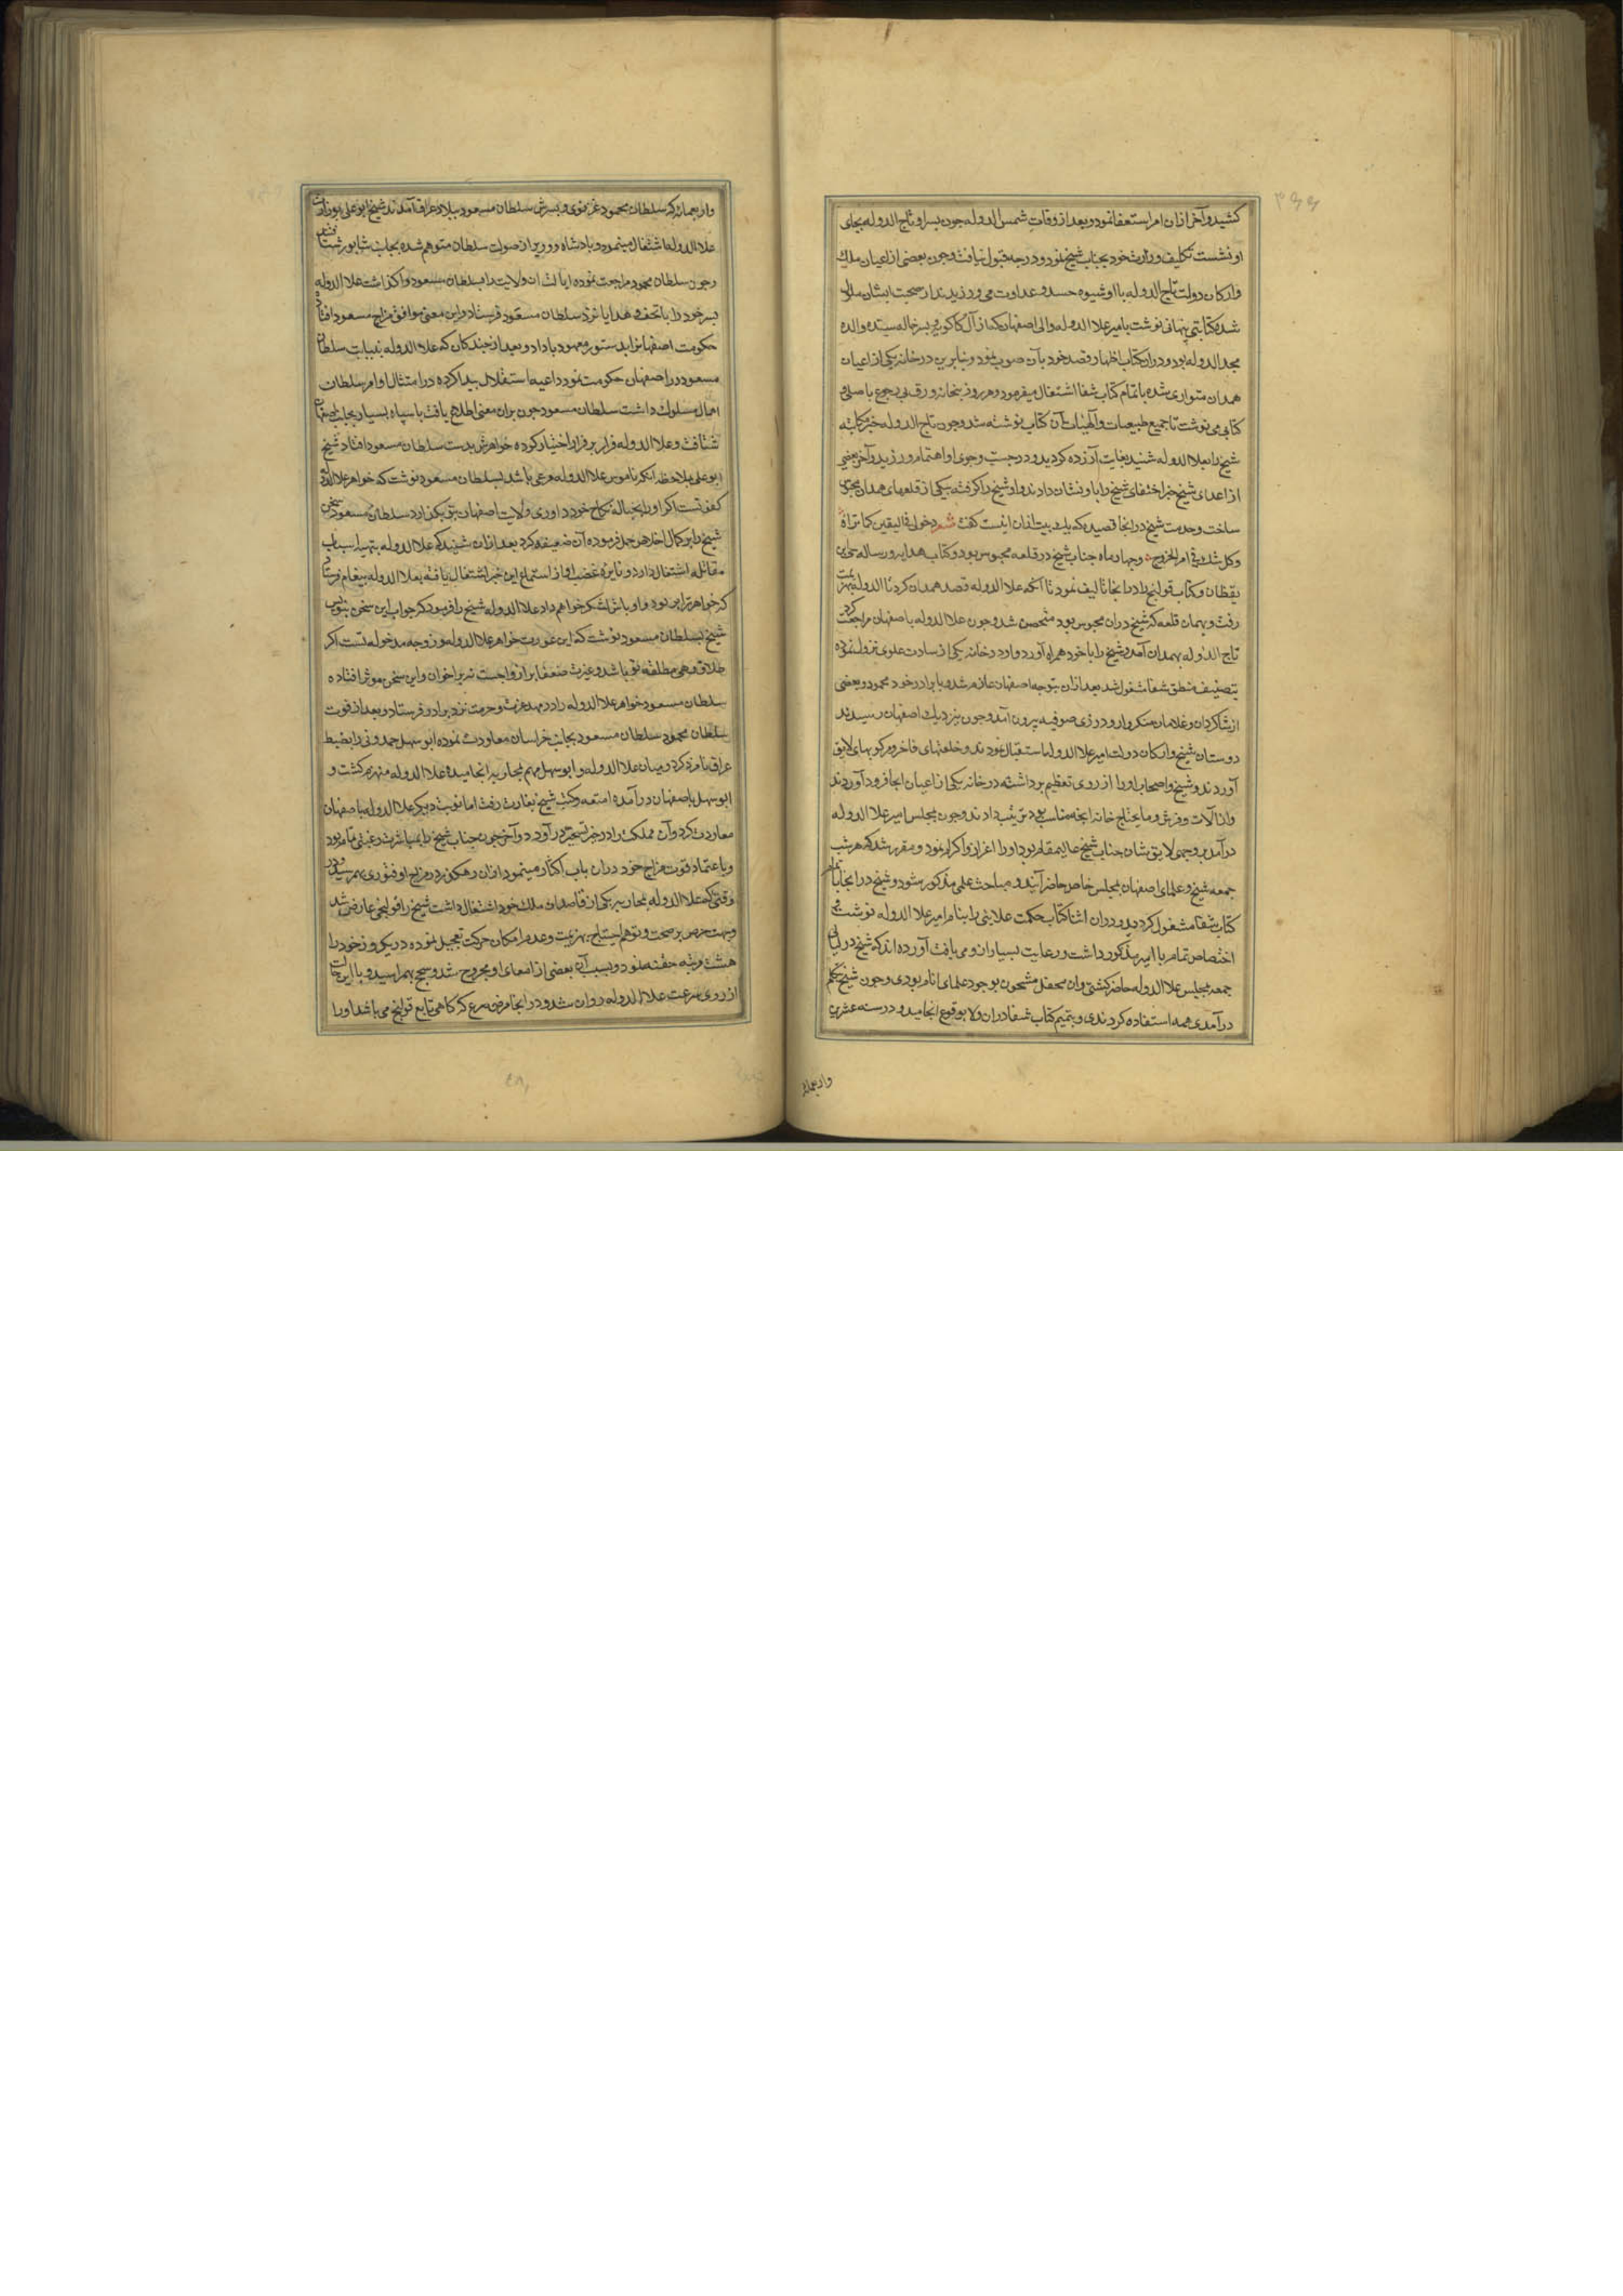 کشید و آخر ازان امر استعفا نمود و بعد از وفات شمس الدوله چون پسر او تاج الدوله بجای
او نشست تکلیف وزارت خود بجناب شیخ نمود و درجه قبول نیافت و چون بعضی از اعیان ملک
و ارکان دولت تاج الدوله با او شیوه حسد و عداوت می ورزیدند از صحبت ایشان ملول
شده کتابتی پنهانی نوشت بامیر علا الدوله والی اصفهان که از آل کاکویه و پسر خاله سیده والده
مجد الدوله بود و دران کتاب اظهار قصد خود بآن صوب نمود و بنابرین در خانه یکی از اعیان
همدان متواری شده باتمام کتاب شفا اشتغال میفرمود و هر روز پنجاه ورق بی رجوع باصلی و
کتابی می نوشت تا جمیع طبیعیات و آلهیات آن کتاب نوشته شد و چون تاج الدوله خبر مکاتبه
شیخ را بعلا الدوله شنید بغایت آزرده گردید و در جست و جوی او اهتمام ورزید و آخر بعضی
از اعدای شیخ خبر اختفای شیخ را باو نشان دادند و او شیخ را گرفته بیکی از قلعهای همدان محبوس
ساخت و حضرت شیخ در انجا قصیده که یک بیت ازان اینست گفت شعر دخولی فی الیقین کما تراه
وکل الشک فی امر الخروج و چهار ماه جناب شیخ در قلعه محبوس بود و کتاب هدایه و رساله حی بن
یقظان و کتاب قولنج را در انجا تالیف نمود تا آنکه علا الدوله قصد همدان کرد تاج الدوله بهزیمت
رفت و بهمان قلعه که شیخ دران محبوس بود متحصن شد و چون علا الدوله باصفهان مراجعت کرد
تاج الدوله بهمدان آمد و شیخ را با خود همراه آورد و او در خانه یکی از سادات علوی نزول نموده
بتصنیف منطق شفا مشغول شد بعد ازان بتوجه اصفهان عازم شد و با برادر خود محمود و بعضی
از شاگردان و غلامان متنکروار و در زی صوفیه بیرون آمد و چون بنزدیک اصفهان رسیدند
دوستان شیخ و ارکان دولت امیر علا الدوله استقبال نمودند و خلعتهای فاخر و مرکوبهای لایق
آوردند و شیخ و اصحاب او را از روی تعظیم برداشته در خانه یکی از اعیان انجا فرود آوردند
و از آلات و فرش و ما یحتاج خانه انچه مناسب بود ترتیب دادند و چون بمجلس امیر علا الدوله
درآمد بر وجهی لایق شان جناب شیخ عالیمقام بود او را اعزاز و اکرام نمود و مقرر شد که هر شب
جمعه شیخ و علمای اصفهان بمجلس خاص حاضر آیند و مباحث علمی مذکور شود و شیخ در انجا باتمام
کتاب شفا مشغول گردید و دران اثنا کتاب حکمت علایی را بنام امیر علا الدوله نوشت و
اختصاص تمام با امیر مذکور داشت و رعایت بسیار ازو می یافت آورده اند که شیخ در لیالی
جمعه بمجلس علا الدوله حاضر گشتی و ان محفل مشحون بوجود علمای انام بودی و چون شیخ بتکلم
درآمدی همه استفاده کردندی و تتمیم کتاب شفا دران ولا بوقوع انجامید و در سنه عشرین
واربعمایه
واربعمایه که سلطان محمود غزنوی و پسرش سلطان مسعود ببلاد عراق آمدند شیخ ابو علی بوزارت
علا الدوله اشتغال مینمود و پادشاه و وزیر از صولت سلطان متوهم شده بجانب شابور شتافتند
و چون سلطان محمود مراجعت نموده ایالت ان ولایت را بسلطان مسعود واگذاشت علا الدوله
پسر خود را با تحف و هدایا نزد سلطان مسعود فرستاد و این معنی موافق مزاج مسعود افتاده
حکومت اصفهان را بدستور معهود باو داد و بعد از چندگاه که علا الدوله بنیابت سلطان
مسعود در اصفهان حکومت نمود داعیه استقلال پیدا کرده در امتثال اوامر سلطان
اهمال مسلوک داشت سلطان مسعود چون بران معنی اطلاع یافت با سپاه بسیار بجانب اصفهان
شتافت و علا الدوله فرار بر قرار اختیار کرده خواهرش بدست سلطان مسعود افتاد شیخ
ابو علی بملاحظه آنکه ناموس علا الدوله مرعی باشد بسلطان مسعود نوشت که خواهر علا الدوله
کفو تست اگر او را بحباله نکاح خود در اوری ولایت اصفهان بتو بگذارد سلطان مسعود سخن
شیخ را بر کمال اخلاص حمل فرموده آن ضعیفه کرد بعد ازان شنید که علا الدوله بتهیه اسباب
مقاتله اشتغال دارد و نایره غضب او از استماع این خبر اشتعال یافته بعلا الدوله پیغام فرستاد
که خواهر ترا برنود و اوباش لشکر خواهم داد علا الدوله شیخ را فرمود که جواب این سخن بنویس
شیخ بسلطان مسعود نوشت که این عورت خواهر علا الدوله و زوجه مدخوله تست اگر
طلاق دهی مطلقه تو باشد و غیرت ضعفا بر ازواجست نه بر اخوان و این سخن موثر افتاده
سلطان مسعود خواهر علا الدوله را در مهد عزت و حرمت نزد برادر فرستاد و بعد از فوت
سلطان محمود سلطان مسعود بجانب خراسان معاودت نموده ابو سهل حمدونی را بضبط
عراق نامزد کرد و میان علا الدوله و ابو سهل مهم بمحاربه انجامیده علا الدوله منهزم گشت و
ابو سهل باصفهان درآمده امتعه و کتب شیخ بغارت رفت اما نوبت دیگر علا الدوله باصفهان
معاودت کرد و آن مملکت را در حیز تسخیر درآورد و آخر چون جناب شیخ را بمباشرت رغبتی تمام بود
و باعتماد قوت مزاج خود دران باب اکثار مینمود ازان رهگذر در مزاج او فتوری بهم رسید و در
وقتی که علا الدوله بمحاربه یکی از قاصدان ملک خود اشتغال داشت شیخ را قولنجی عارض شد
و بجهت حرص بر صحت و توهم احتیاج بهزیمت و عدم امکان حرکت تعجیل نموده در یکروز خود را
هشت مرتبه حقنه نمود و بسبب آن بعضی از امعای او مجروح شد و سحج بهم رسید و با این حالت
از روی سرعت علا الدوله روان شد و در انجا مرض صرع که گاهی تابع قولنج می باشد او را